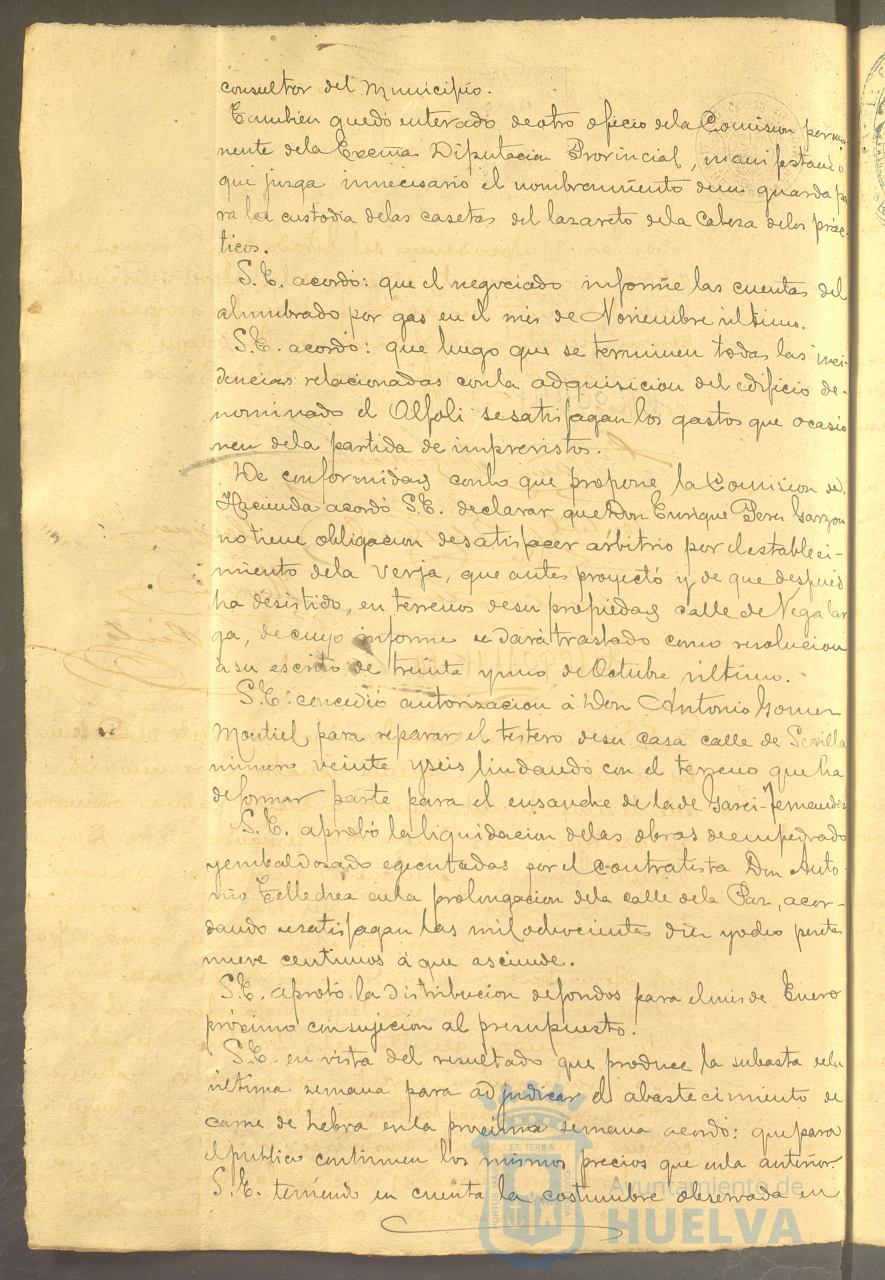 consultor del Municipio.
Tambien quedó enterado de otro oficio de la Comision perma-
nente de la Excma Diputacion Provincial, manifestando
que juzga innecesario el nombramiento de un guarda pa
ra la custodia de las casetas del lazareto de la Cabeza de los prác-
ticos.
S.E. acordó: que el negociado informe las cuentas del
alumbrado por gas en el mes de Noviembre último.
S.E. acordó: que luego que se terminen todas las inci-
dencias relacionadas con la adquisicion del edificio de-
nominado el Alfoli se satisfagan los gastos que ocasio
nen de la partida de imprevistos.
De conformidad con lo que propone la Comision de
Hacienda acordó S.E. declarar que Don Enrique Perez Garzon
no tiene obligacion de satisfacer arbitrio por el estableci-
miento de la verja, que antes proyectó y de que despues
ha desistido, en terrenos de su propiedad calle de Vega lar
ga, de cuyo informe se dará traslado como resolucion
a su escrito de treinta y uno de Octubre último.
S.E. concedió autorizacion á Don Antonio Gomez
Montiel para reparar el testero de su casa calle de Sevilla
número veinte y seis lindando con el terreno que ha
de formar parte para el ensanche de la de Garci-Fernandez
S.E. aprobó la liquidacion de las obras de empedrado
y embaldosado egecutadas por el contratista Don Anto-
nio Tellechea en la prolongacion de la calle de la Paz, acor-
dando se satisfagan las mil ochocientas diez y ocho pesetas
nueve centimos á que asciende.
S.E. aprobó la distribucion de fondos para el mes de Enero
próximo con sujecion al presupuesto.
S.E. en vista del resultado que produce la subasta de la
última semana para adjudicar el abastecimiento de
carne de hebra en la procsima semana acordó: que para
el publico continuen los mismos precios que en la anterior.
S.E. teniendo en cuenta la costumbre observada en
Ayuntamiento de
HUELVA